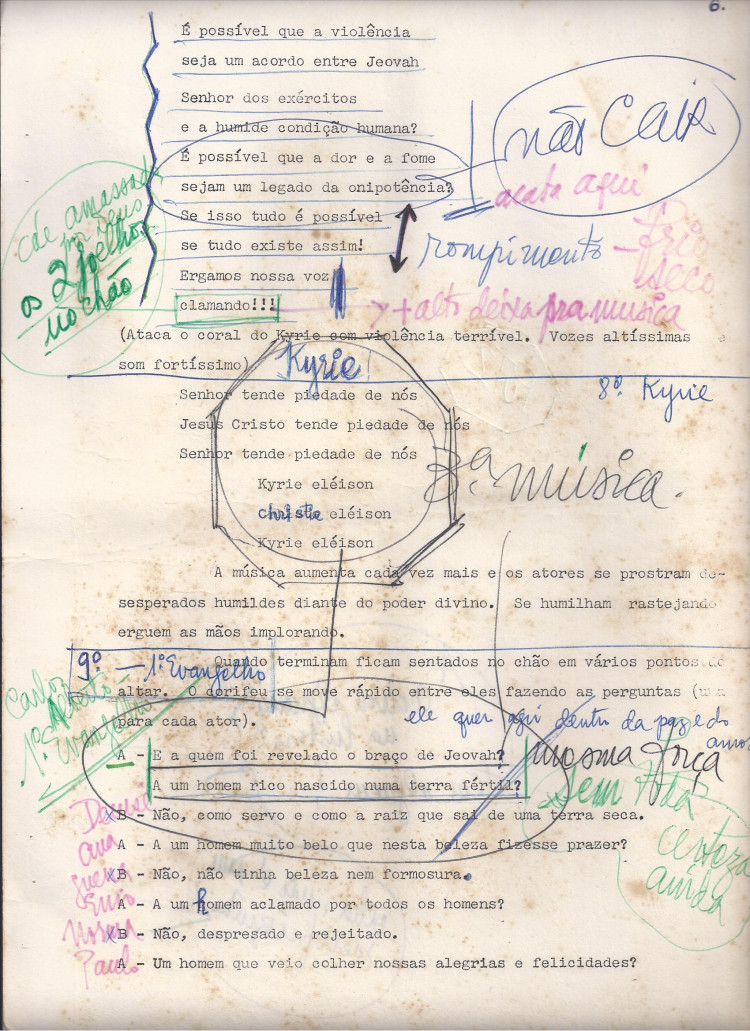 6.
É possível que a violência
seja um acordo entre Jeovah
Senhor dos exércitos
e a humide condição humana?
não cair
É possível que a dor e a fome
sejam um legado da onipotência?
acaba aqui
Se isso tudo é possível
se tudo existe assim!
rompimento
frio
seco
Ergamos nossa voz
clamando!!!
+ alto deixa pra musica
amassada
por Deus
os 2 joelhos
no chão
(Ataca o coral do Kyrie com violência terrível. Vozes altíssimas e
som fortíssimo)
Kyrie
8º. Kyrie
Senhor tende piedade de nós
Jesus Cristo tende piedade de nós
Senhor tende piedade de nós
3ª música.
Kyrie eléison
christie eléison
Kyrie eléison
A música aumenta cada vez mais e os atores se prostram de-
sesperados humildes diante do poder divino. Se humilham rastejando
erguem as mãos implorando.
9º — 1º Evangelho
Carlos
Alberto
1º Evangelho
Quando terminam ficam sentados no chão em vários pontos do
altar. O corifeu se move rápido entre eles fazendo as perguntas (uma
para cada ator).
ele quer aqui dentro da paz e do
amor
A - E a quem foi revelado o braço de Jeovah?
mesma força
A um homem rico nascido numa terra fértil?
sem
certeza
ainda
xB - Não, como servo e como a raiz que sai de uma terra seca.
A - A um homem muito belo que nesta beleza fizesse prazer?
xB - Não, não tinha beleza nem formosura.
A - A um homem aclamado por todos os homens?
xB - Não, despresado e rejeitado.
A - Um homem que veio colher nossas alegrias e felicidades?
ana
Enio
Norma
Paulo